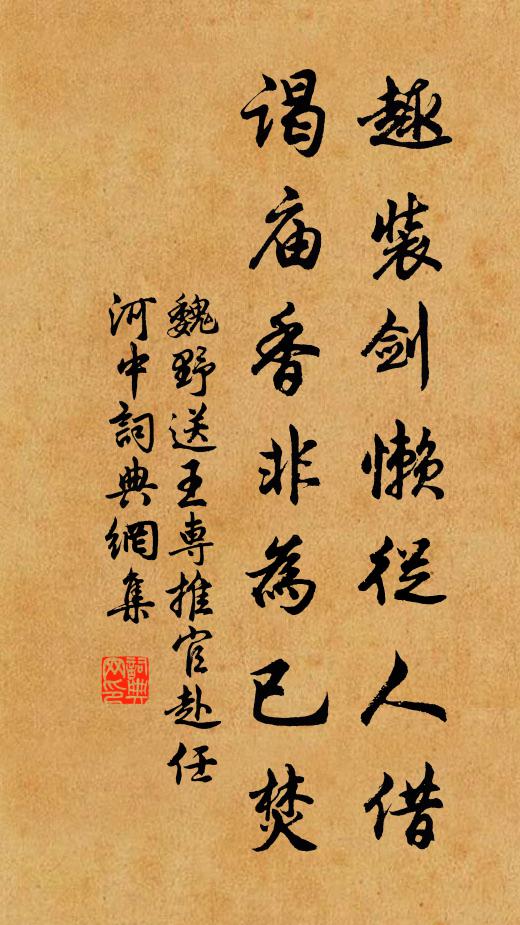 趣装剑懒从人借
谒庙香非為已焚
魏野送王専推官赴任
河中詞典網集
詞典
网印